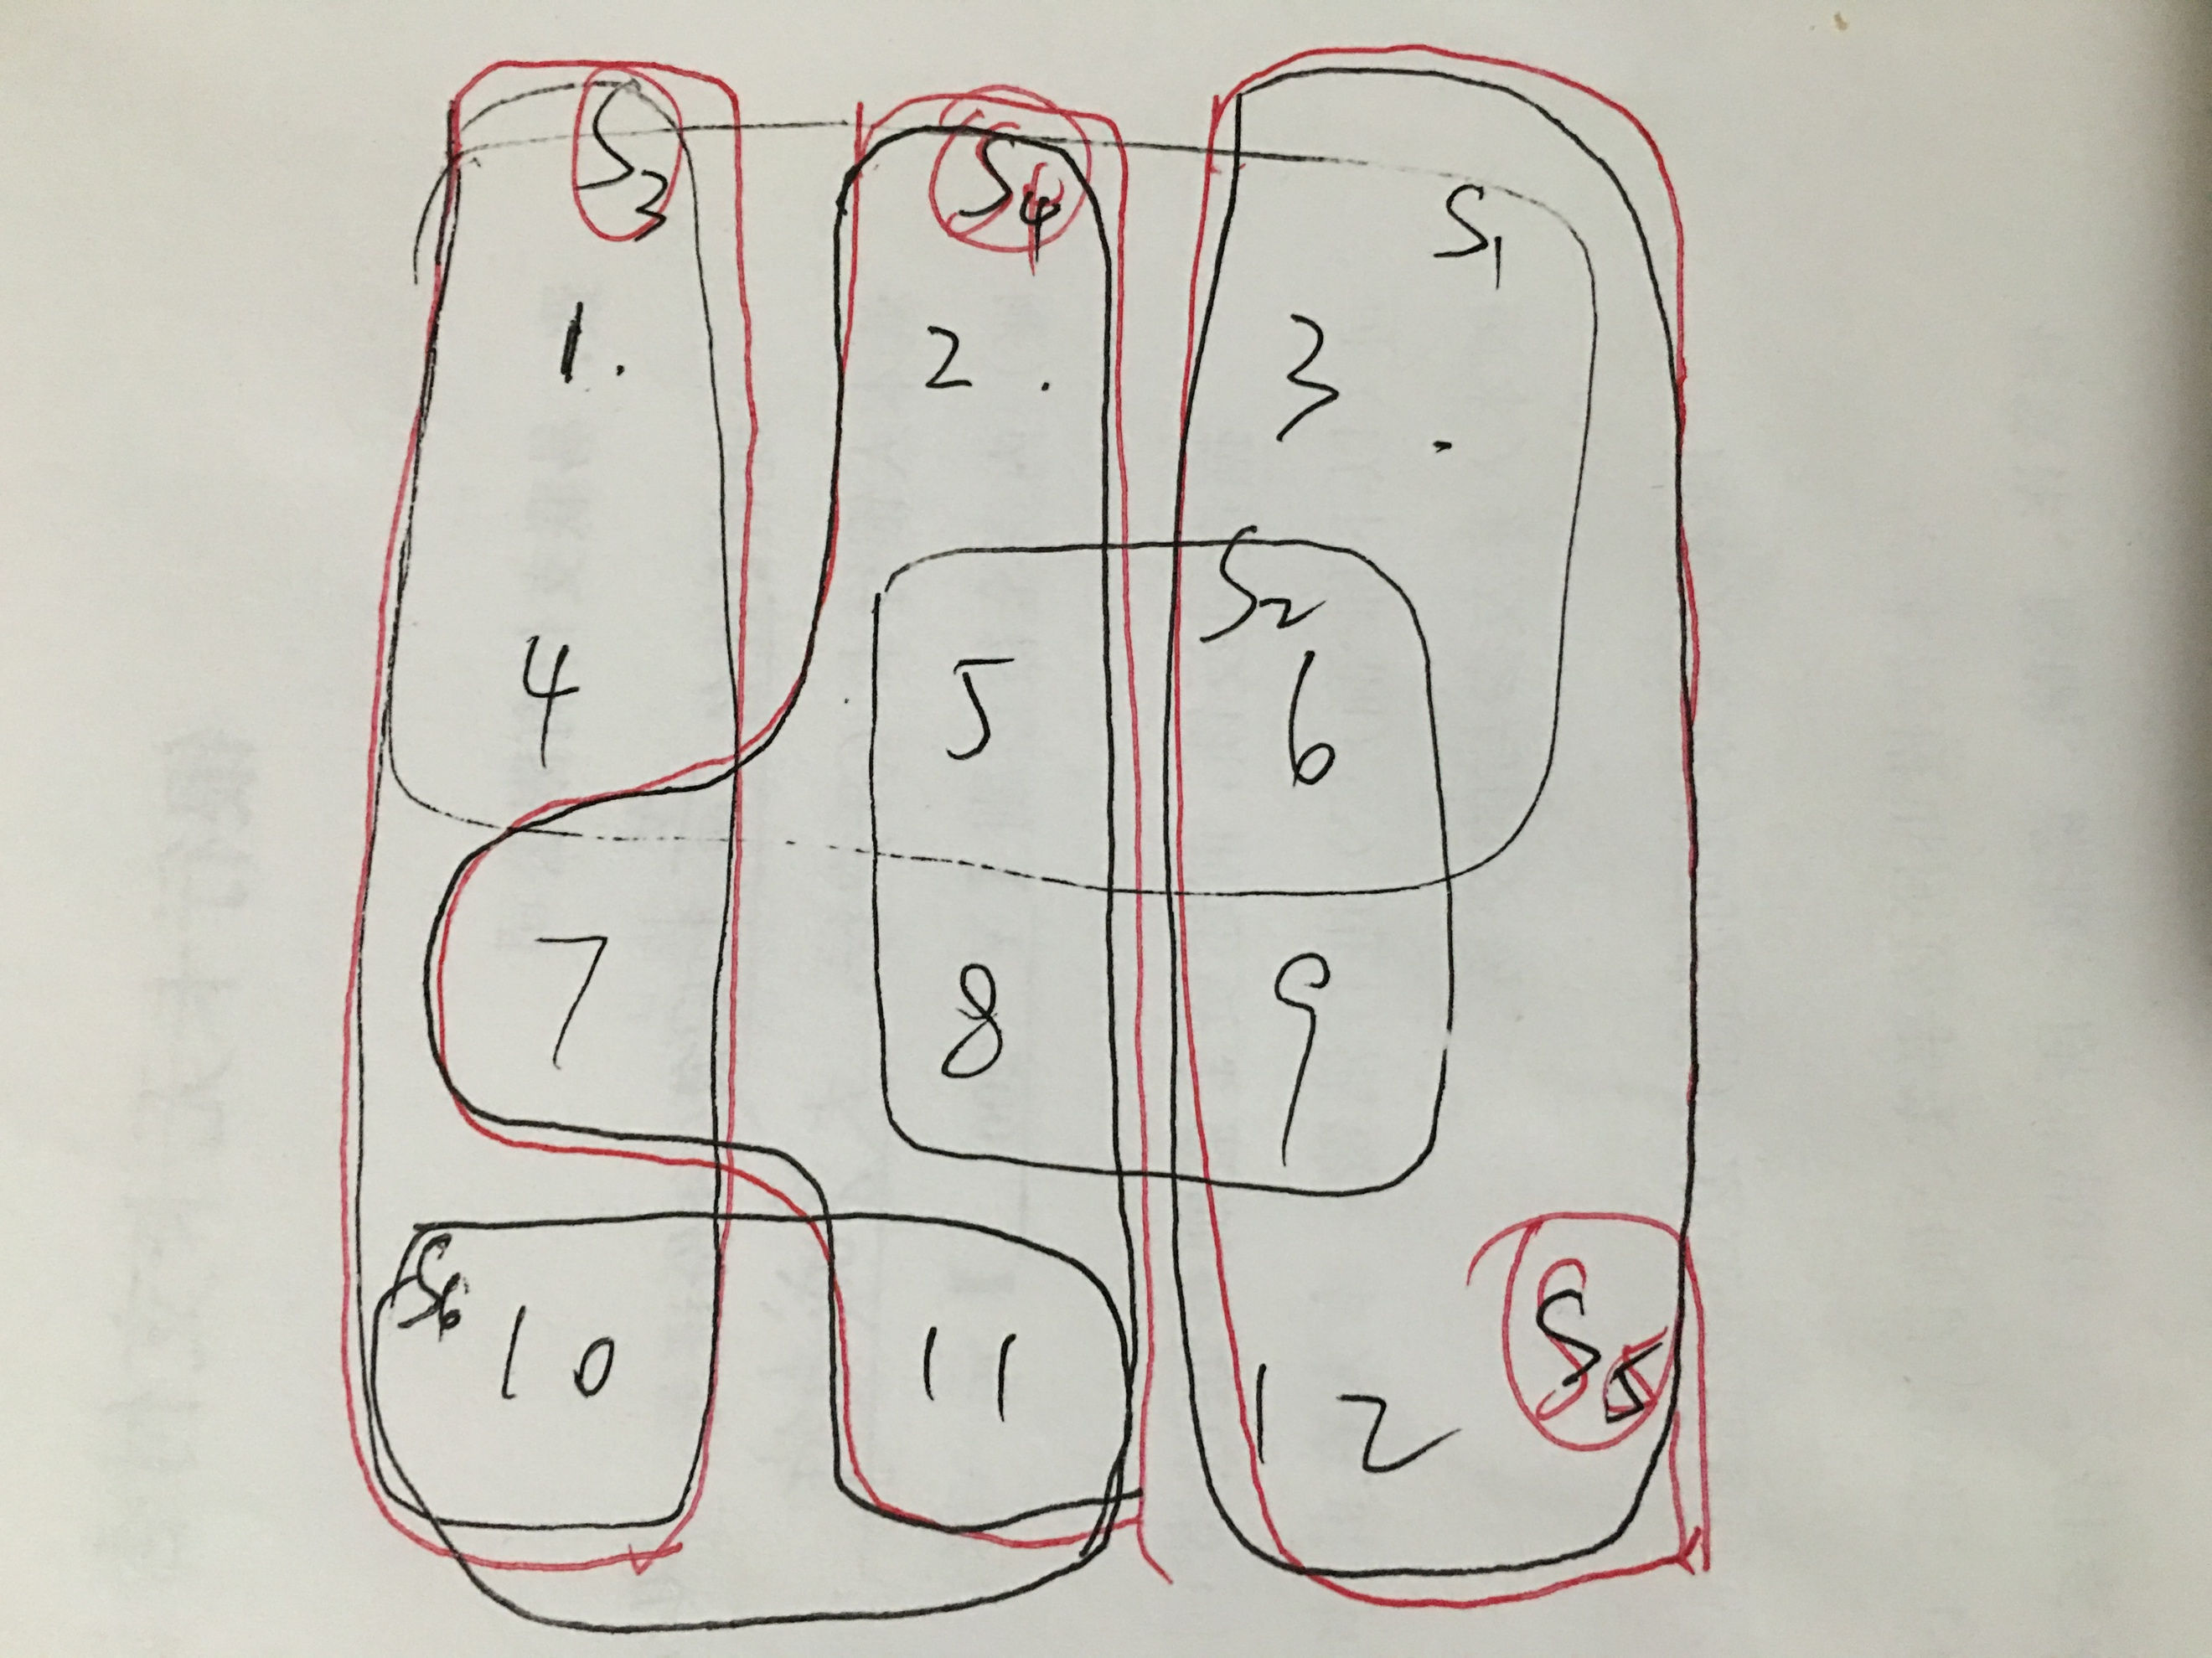 S3 S4 S1
1. 2. 3.
S2
4 5 6
7 8 9
S6 S5
10 11 12